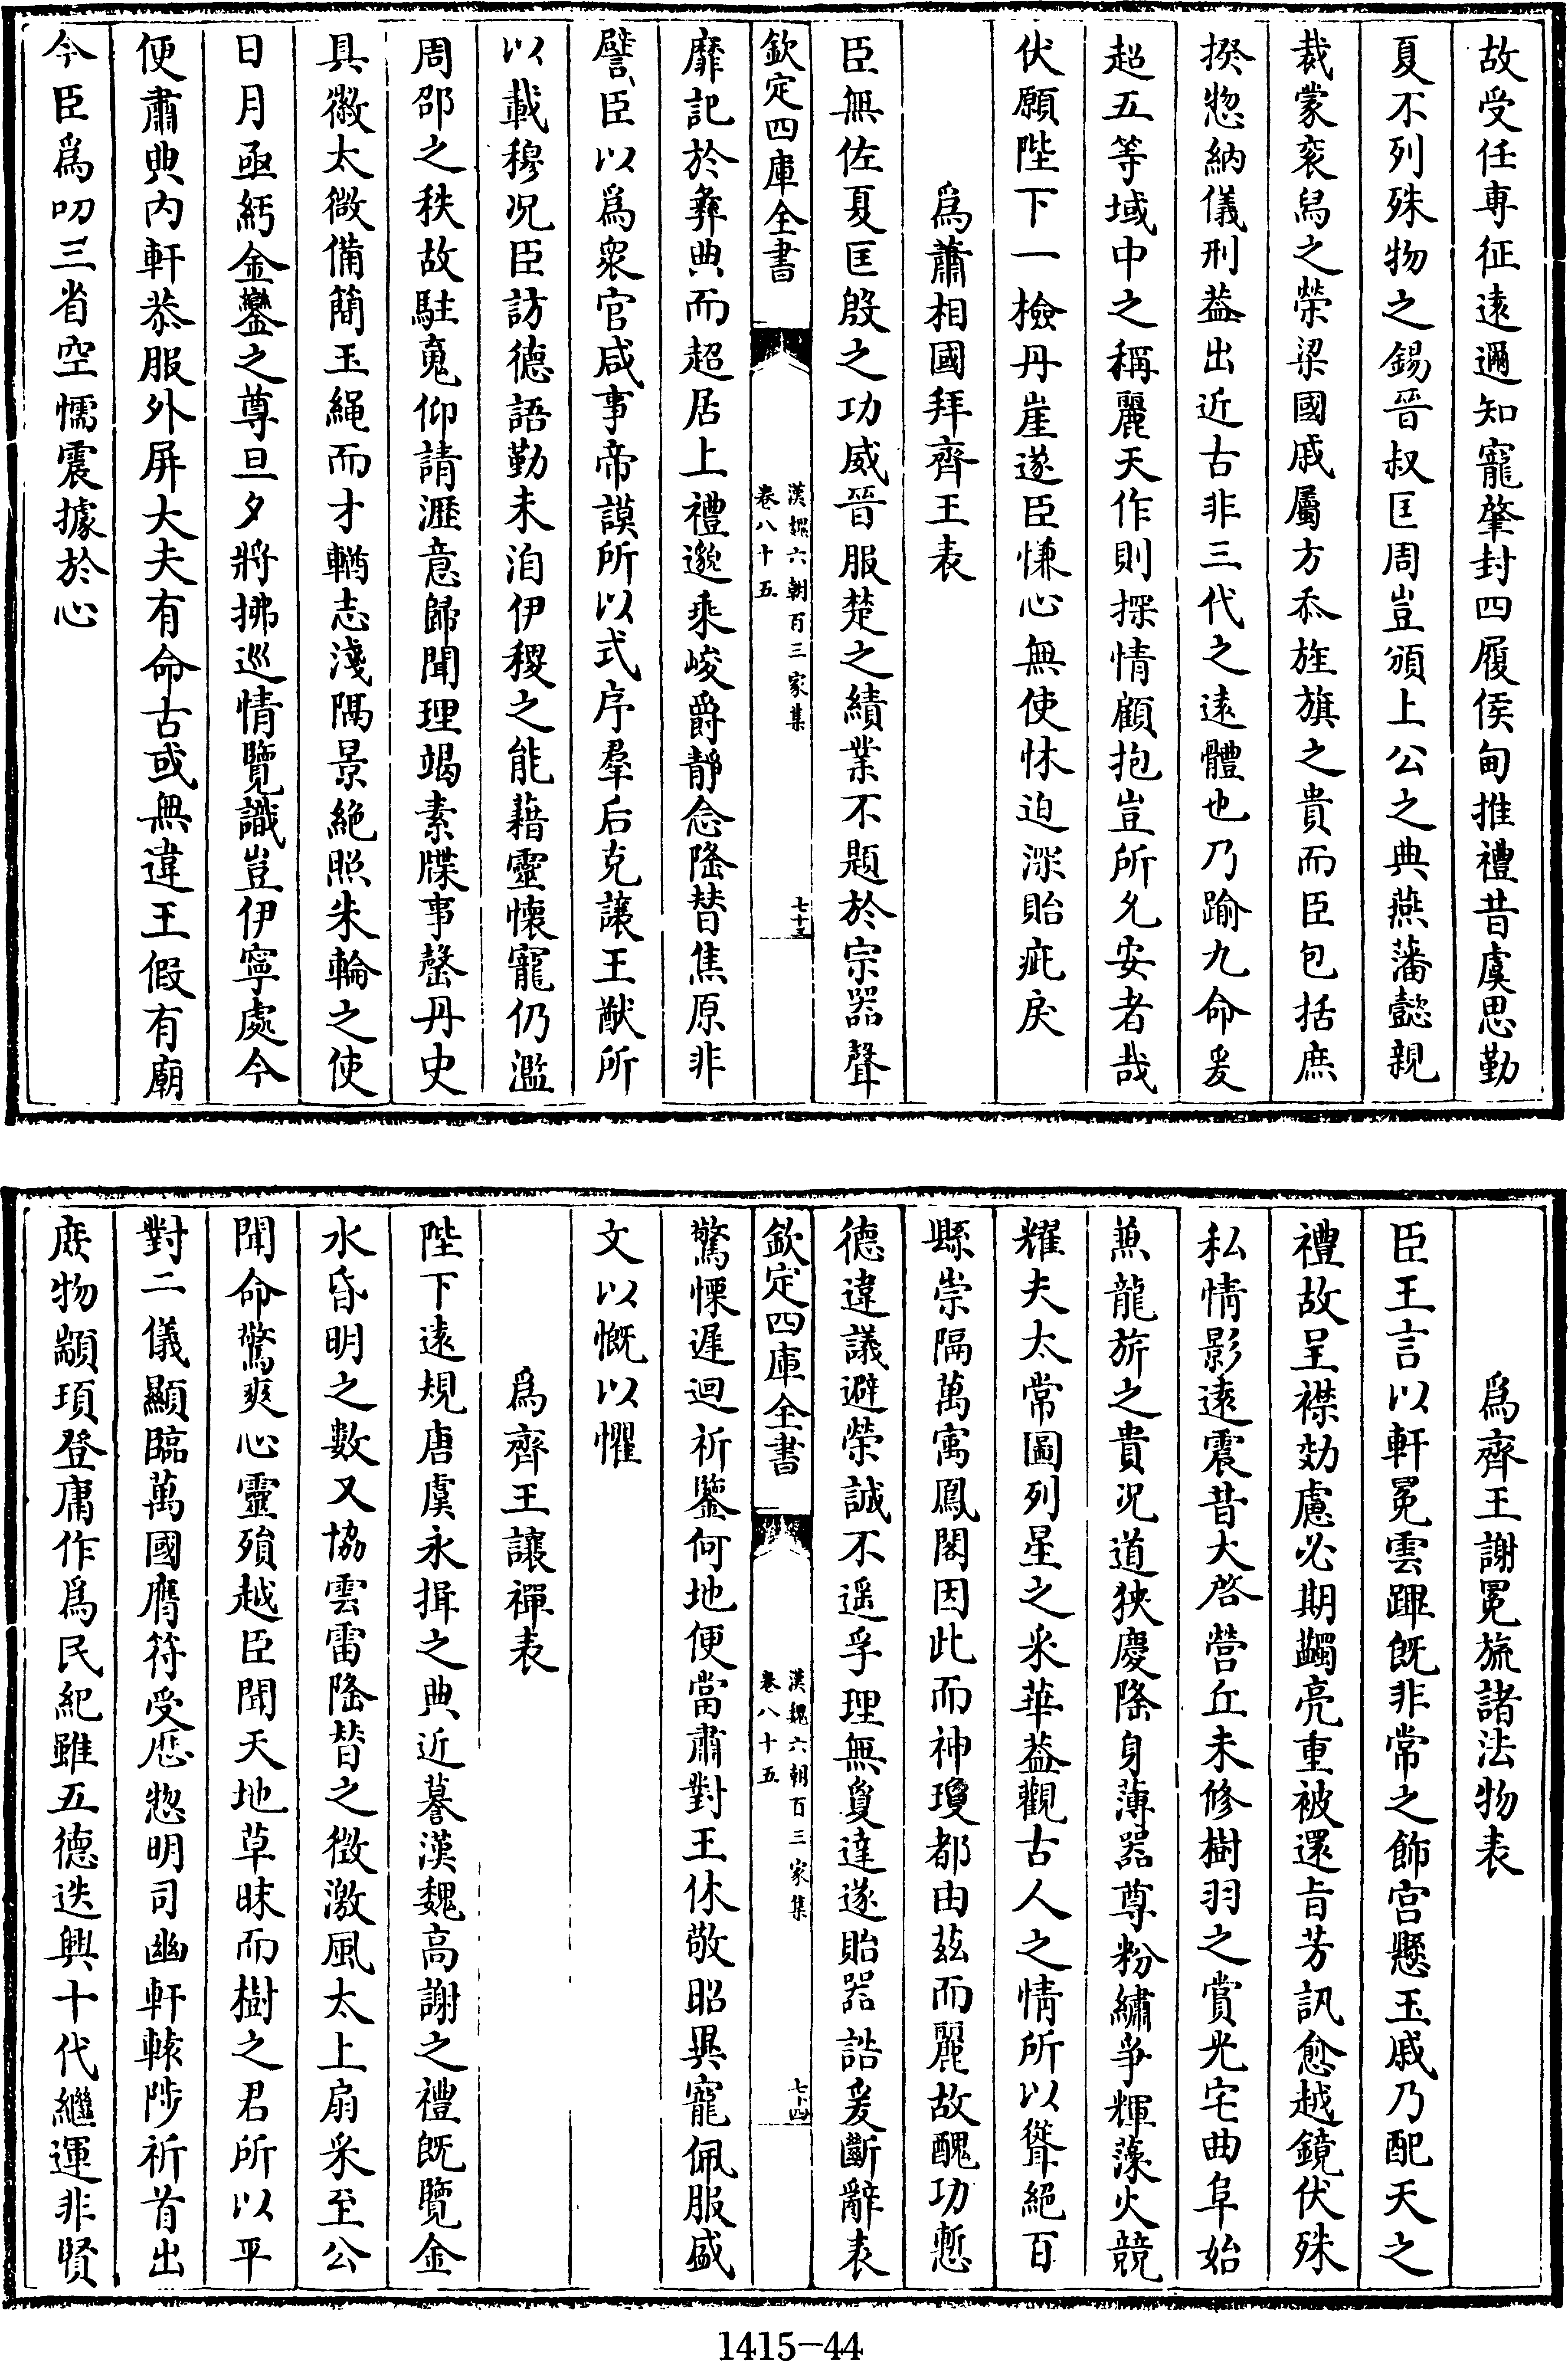 故受任専征逺邇知寵肇封四履侯甸推禮昔虞思勤
夏不列殊物之錫晉叔匡周豈頒上公之典燕藩懿親
裁蒙衮舄之榮梁國戚屬方忝旌旗之貴而臣包括庶
揆惣納儀刑葢出近古非三代之逺體也乃踰九命爰
超五等域中之稱麗天作則探情顧抱豈所允安者哉
伏願陛下一檢丹崖遂臣慊心無使怵迫深貽疵戾
爲蕭相國拜齊王表
臣無佐夏匡殷之功威晉服楚之績業不題於宗器聲
欽定四庫全書
漢魏六朝百三家集
卷八十五
七十三
靡記於彝典而超居上禮邈乘峻爵靜念隆替焦原非
譬臣以爲衆官咸事帝謨所以式序羣后克讓王猷所
以載穆况臣訪德語勤未洎伊稷之能藉靈懐寵仍濫
周邵之秩故駐䰟仰請瀝意歸聞理竭素牒事罄丹史
具徽太微備簡玉繩而才輶志淺隅景絶照朱輪之使
日月亟紆金鑾之尊旦夕將拂巡情覽識豈伊寧處今
便肅典内軒恭服外屏大夫有命古或無違王假有廟
今臣爲叨三省空懦震據於心
爲齊王謝冕旒諸法物表
臣王言以軒冕雲蹕既非常之飾宫懸玉戚乃配天之
禮故呈襟効慮必期蠲亮重被還㫖芳訊愈越鏡伏殊
私情影逺震昔大啓營丘未修樹羽之賞光宅曲阜始
兼龍旂之貴况道狹慶隆身薄器尊粉繡爭輝藻火競
耀夫太常圖列星之采華葢觀古人之情所以聳絕百
縣崇隔萬寓鳳閣因此而神瓊都由兹而麗故醜功慙
德違議避榮誠不遥孚理無敻達遂貽器誥爰斷辭表
欽定四庫全書
漢魏六朝百三家集
卷八十五
七十四
驚慄遲迴祈鑒何地便當肅對王休敬昭異寵佩服盛
文以慨以懼
爲齊王讓禪表
陛下逺規唐虞永揖之典近摹漢魏高謝之禮既覽金
水昏明之數又協雲雷隆替之徴激風太上扇采至公
聞命驚爽心靈殞越臣聞天地草昧而樹之君所以平
對二儀顯臨萬國膺符受厯惣明司幽軒轅陟祈首出
庶物顓頊登庸作爲民紀雖五德迭興十代繼運非賢
1415-44